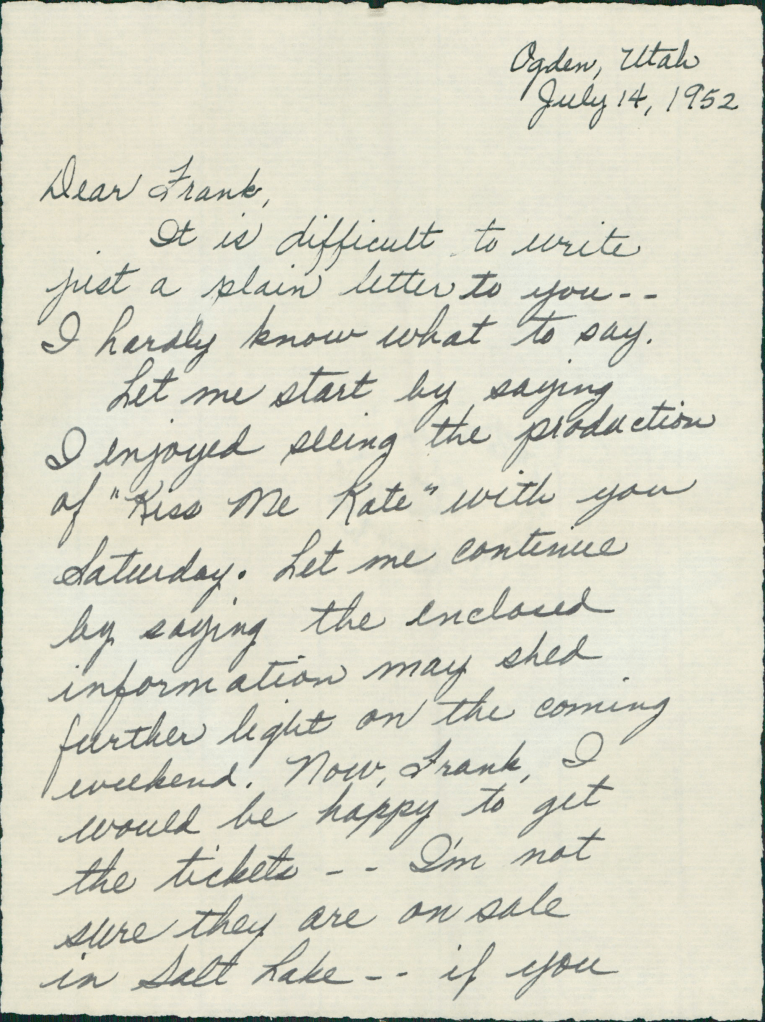 Ogden, Utah
July 14, 1952
Dear Frank,
It is difficult to write
just a plain letter to you--
I hardly know what to say.
Let me start by saying
I enjoyed seeing the production
of "Kiss Me Kate" with you
Saturday. Let me continue
by saying the enclosed
information may shed
further light on the coming
weekend. Now, Frank, I
would be happy to get
the tickets -- I'm not
sure they are on sale
in Salt Lake -- if you